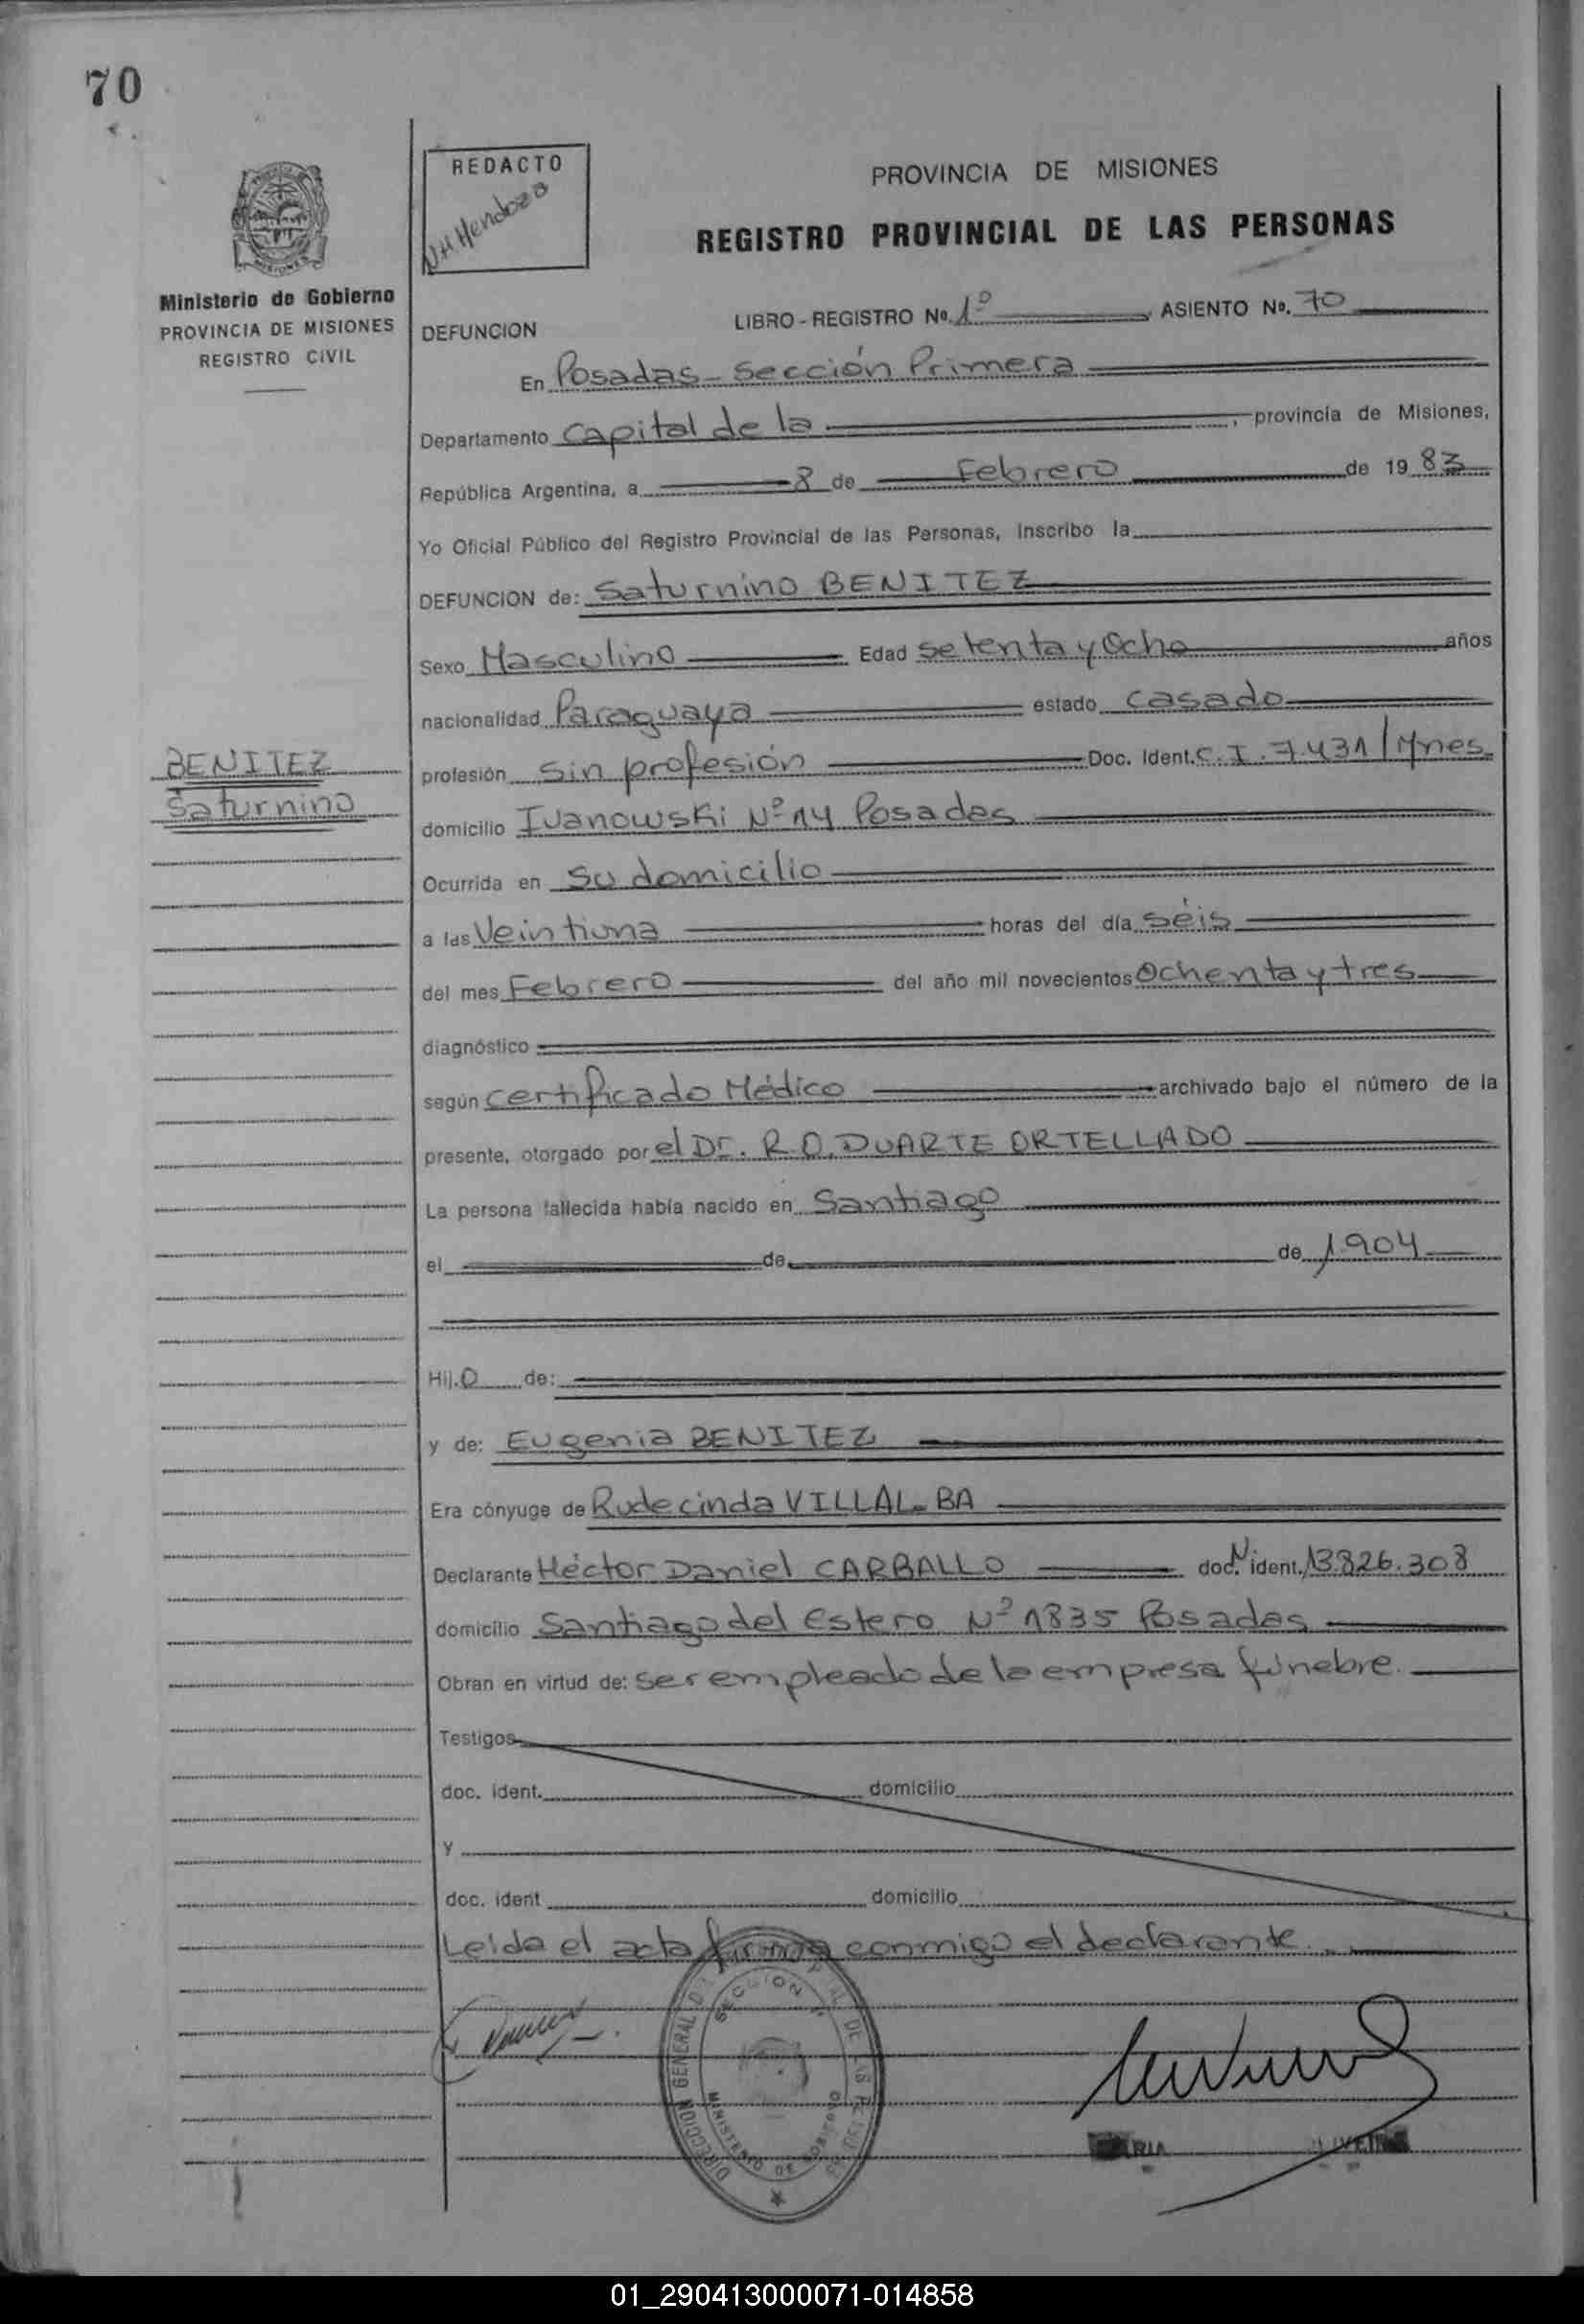 70
REDACTO
Mendoza
PROVINCIA DE MISIONES
REGISTRO PROVINCIAL DE LAS PERSONAS
MISIONES
Ministerio de Gobierno
PROVINCIA DE MISIONES
REGISTRO CIVIL
DEFUNCION LIBRO - REGISTRO Nº. 1º, ASIENTO Nº. 70
En Posadas - Sección Primera
Departamento Capital de la, provincia de Misiones,
República Argentina, a 8 de Febrero de 1983
Yo Oficial Público del Registro Provincial de las Personas, inscribo la
DEFUNCION de: Saturnino BENITEZ
Sexo Masculino Edad setenta y Ocho años
nacionalidad Paraguaya estado casado
BENITEZ
Saturnino
profesión sin profesión Doc. Ident. C.I. 7.431/Mnes.
domicilio Ivanowski Nº 14 Posadas
Ocurrida en su domicilio
a las Veintiuna horas del día séis
del mes Febrero del año mil novecientos Ochenta y tres
diagnóstico
según certificado Médico archivado bajo el número de la
presente, otorgado por el Dr. R.O. DUARTE ORTELLADO
La persona fallecida había nacido en Santiago
el de de 1.904
Hij.o de:
y de: Eugenia BENITEZ
Era cónyuge de Rudecinda VILLALBA
Declarante Héctor Daniel CARBALLO doc. N ident. 13826.308
domicilio Santiago del Estero Nº 1835 Posadas
Obran en virtud de: ser empleado de la empresa fúnebre.
Testigos
doc. ident. domicilio
y
doc. ident domicilio
Leída el acta firma conmigo el declarante.
DIRECCION GENERAL DE LAS
SECCION
MINISTERIO DE GOBIERNO
01_290413000071-014858